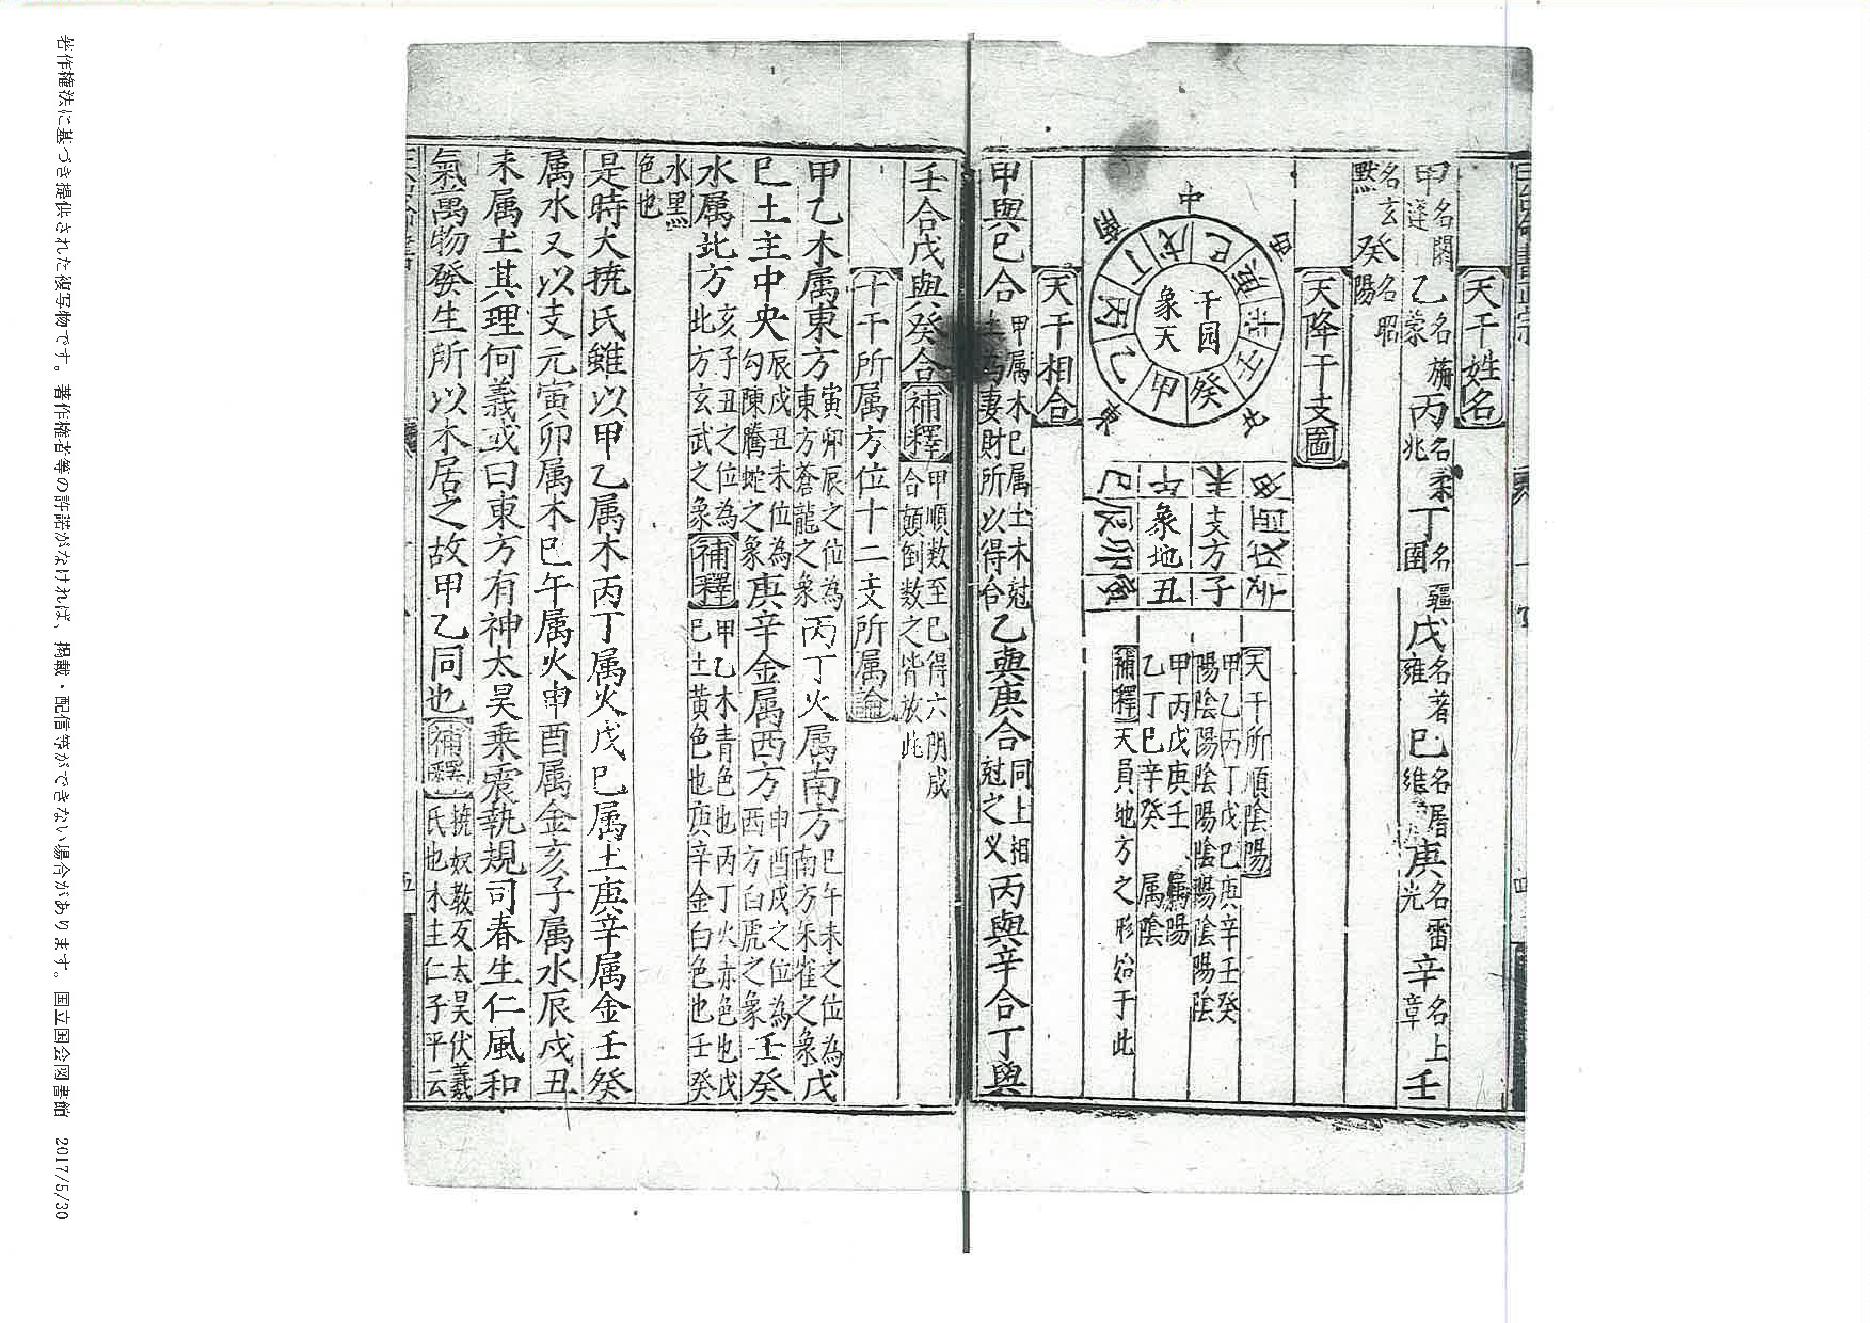 天干姓名
甲名閼逢乙名旃蒙丙名柔兆丁名疆圉戊名著雍巳名屠維庚名上章辛名
名玄黓癸名昭陽
天降干支圖
中
南
西
東
北
甲乙丙丁戊巳庚辛壬癸
干园
象天
巳午未申
辰象支酉
卯地方戌
寅丑子亥
天干所順陰陽
甲乙丙丁戊巳庚辛壬癸
陽陰陽陰陽陰陽陰陽陰
甲丙戊庚壬 属陽
乙丁巳辛癸 属陰
補釋天員地方之形始于此
天干相合
甲與巳合甲属木巳属土木尅土為妻財所以得合乙與庚合同上相尅之义丙與辛合丁與
壬合戊與癸合補釋甲順数至巳得六用成合顛倒数之皆放此
十干所属方位十二支所属論
甲乙木属東方寅卯辰之位為東方蒼龍之象丙丁火属南方巳午未之位為南方朱雀之象戊
巳土主中央辰戌丑未位為勾陳騰蛇之象庚辛金属西方申酉戌之位為西方白虎之象壬癸
水属北方亥子丑之位為北方玄武之象補釋甲乙木青色也丙丁火赤色也戊巳土黃色也庚辛金白色也壬癸
水黑色也
是時大撓氏雖以甲乙属木丙丁属火戊巳属土庚辛属金壬癸
属水又以支元寅卯属木巳午属火申酉属金亥子属水辰戌丑
未属土其理何義或曰東方有神太昊乘震執規司春生仁風和
氣萬物發生所以木居之故甲乙同也補釋撓奴教反太昊伏羲氏也木主仁子平云
五
著作権法に基づき提供された複写物です。著作権者等の許諾がなければ、掲載・配信等ができない場合があります。国立国会図書館 2017/5/30